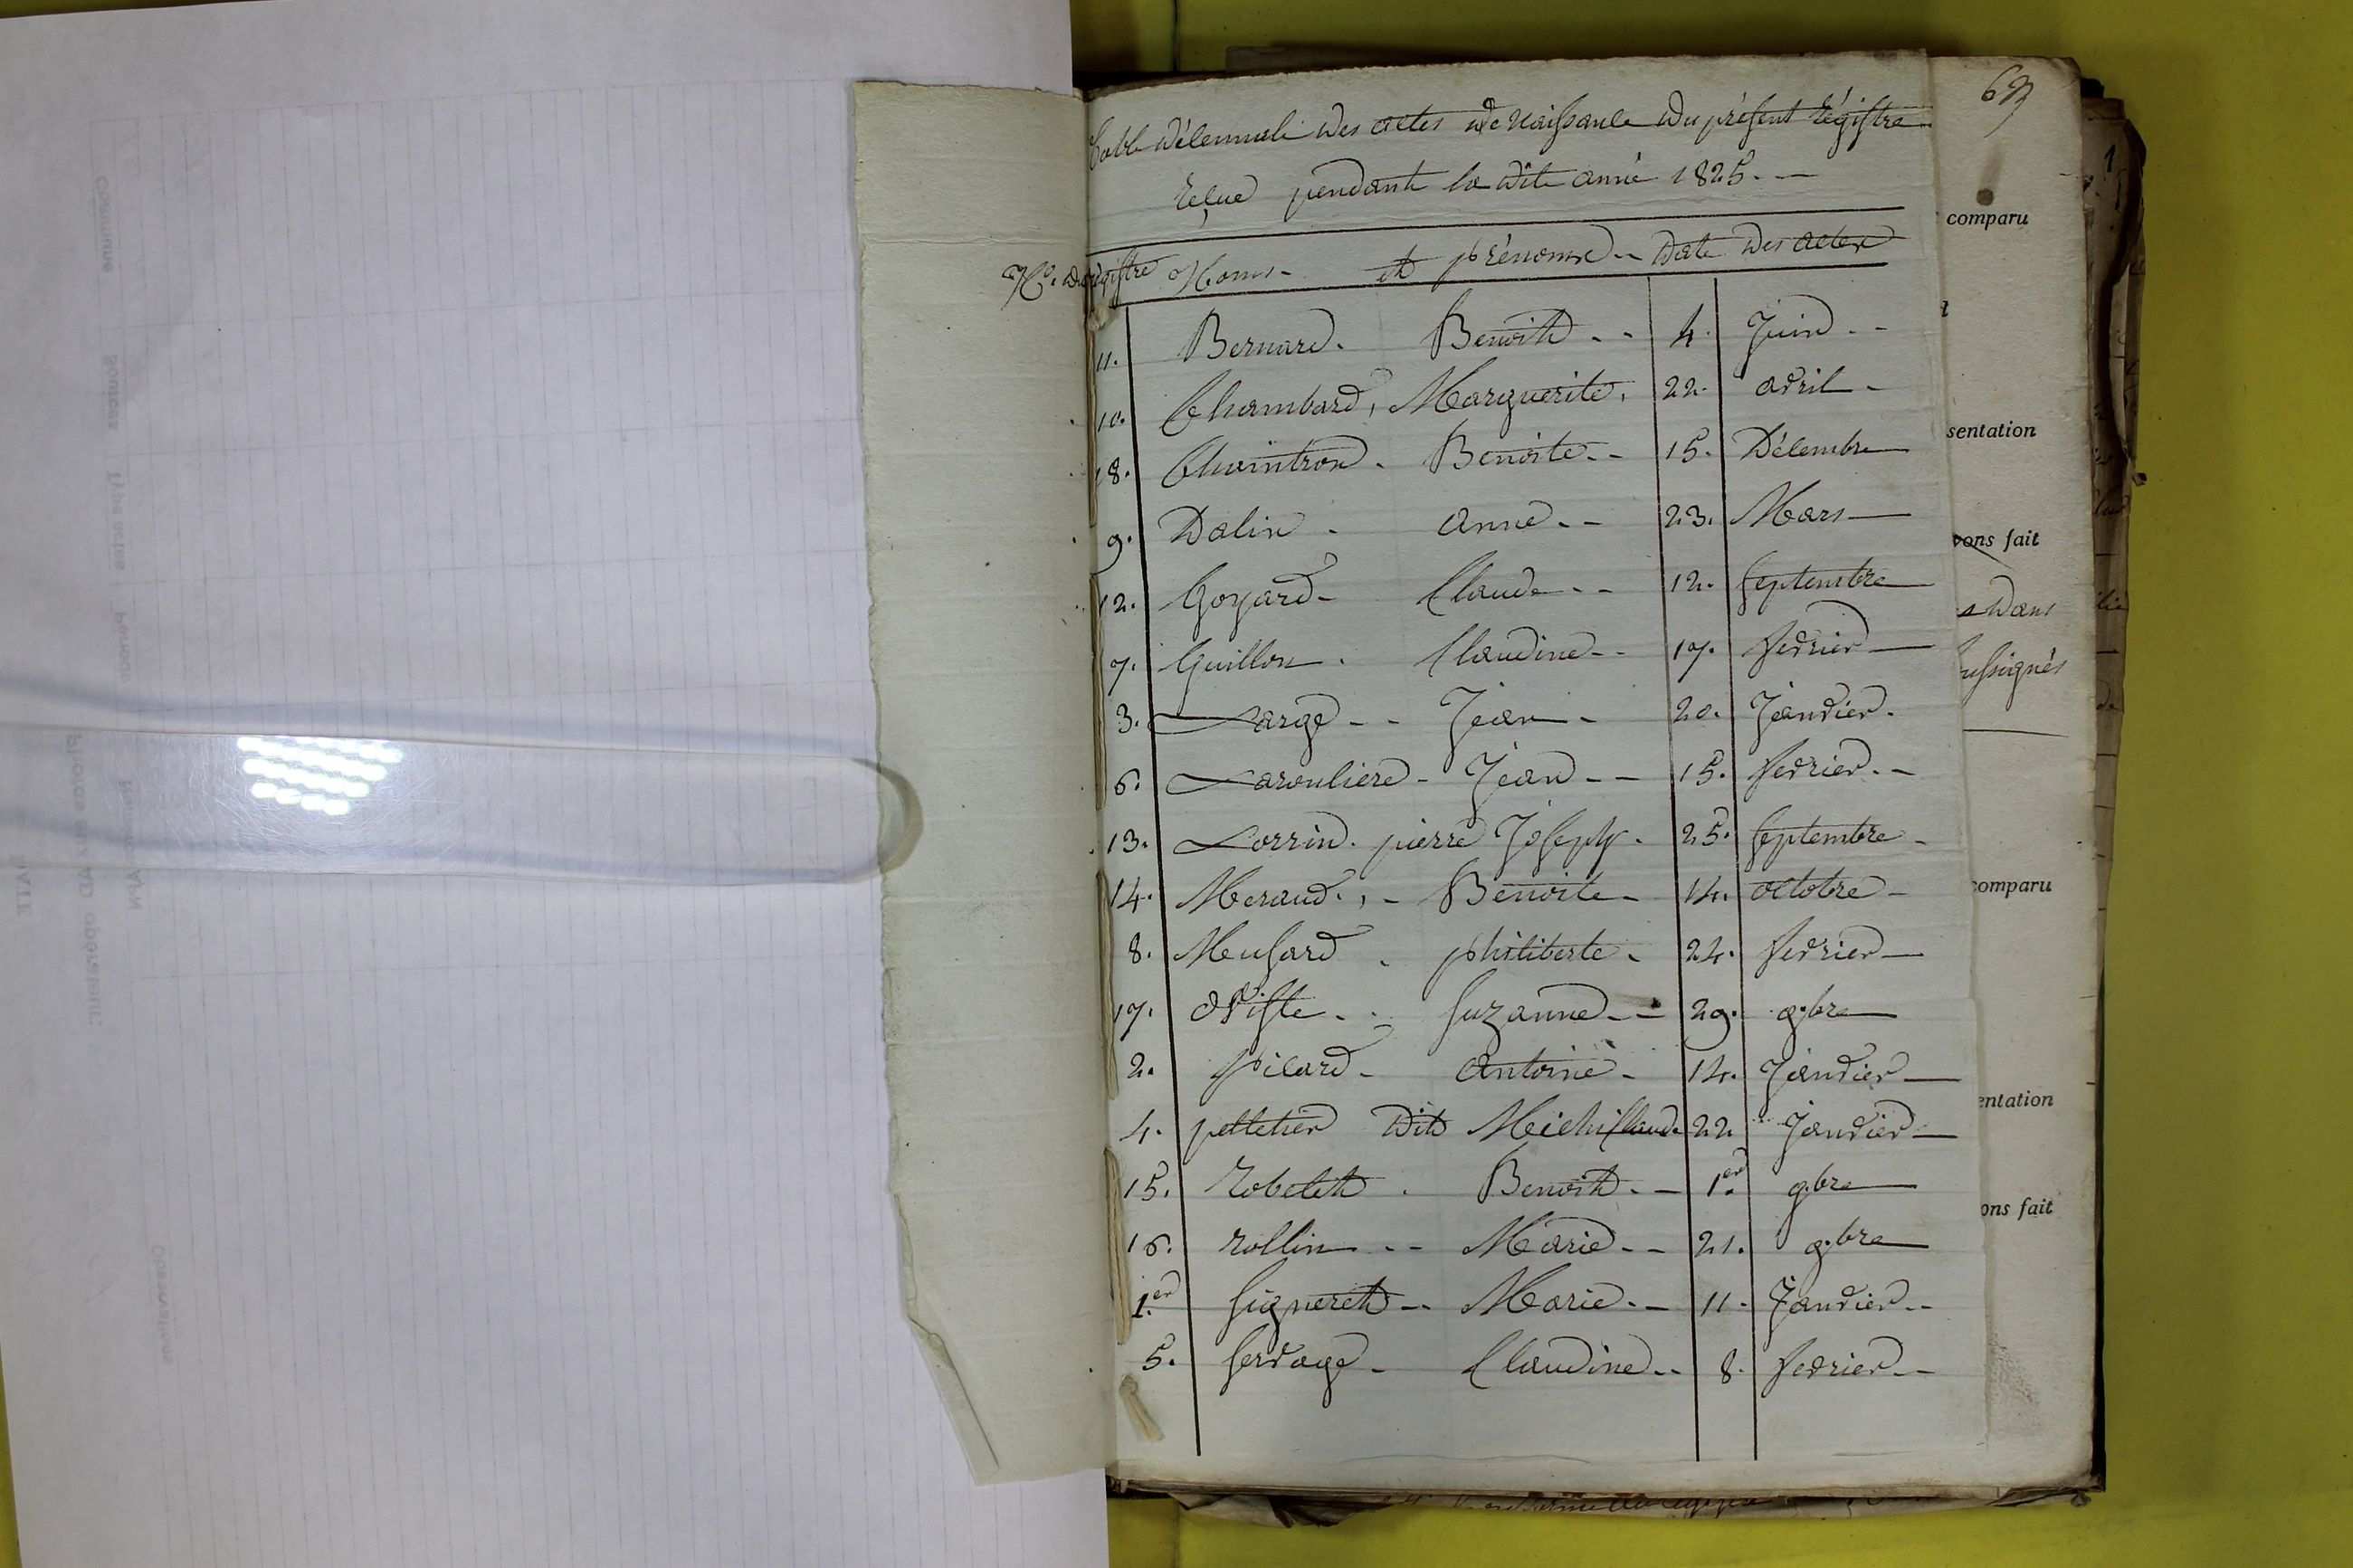 69
Table décennale des actes de naissance du présent régistre
reçue pendant la dite année 1825.
No. du régistre Noms et prénoms Date des actes
11. Bernard. Benoit 4. Juin
10. Chambard, Marguerite, 22. avril
18. Chaintron. Benoite 15. Décembre
9. Dalin anne 23. Mars
12. Goyard Claude 12. septembre
7. Guillon. Claudine 17. fevrier
3. Large Jean 20. Janvier.
6. Laroulière Jean 15. fevrier
13. Lorrin. pierre Joseph. 25. septembre
14. Meraud, Benoite 14. octobre
8. Meusard philiberte 24. fevrier
17. Oviste Suzanne 29. 9.bre
2. picard Antoine 14. Janvier
4. pelletier dit Michi Claude 22 Janvier
15. robelet Benoit 1er. 9.bre
16. rollin Marie 21. 9.bre
1er. signeret Marie 11. Janvier
5. servage Claudine 8. fevrier
comparu
sentation
vons fait
s dans
soussignés
comparu
entation
ons fait